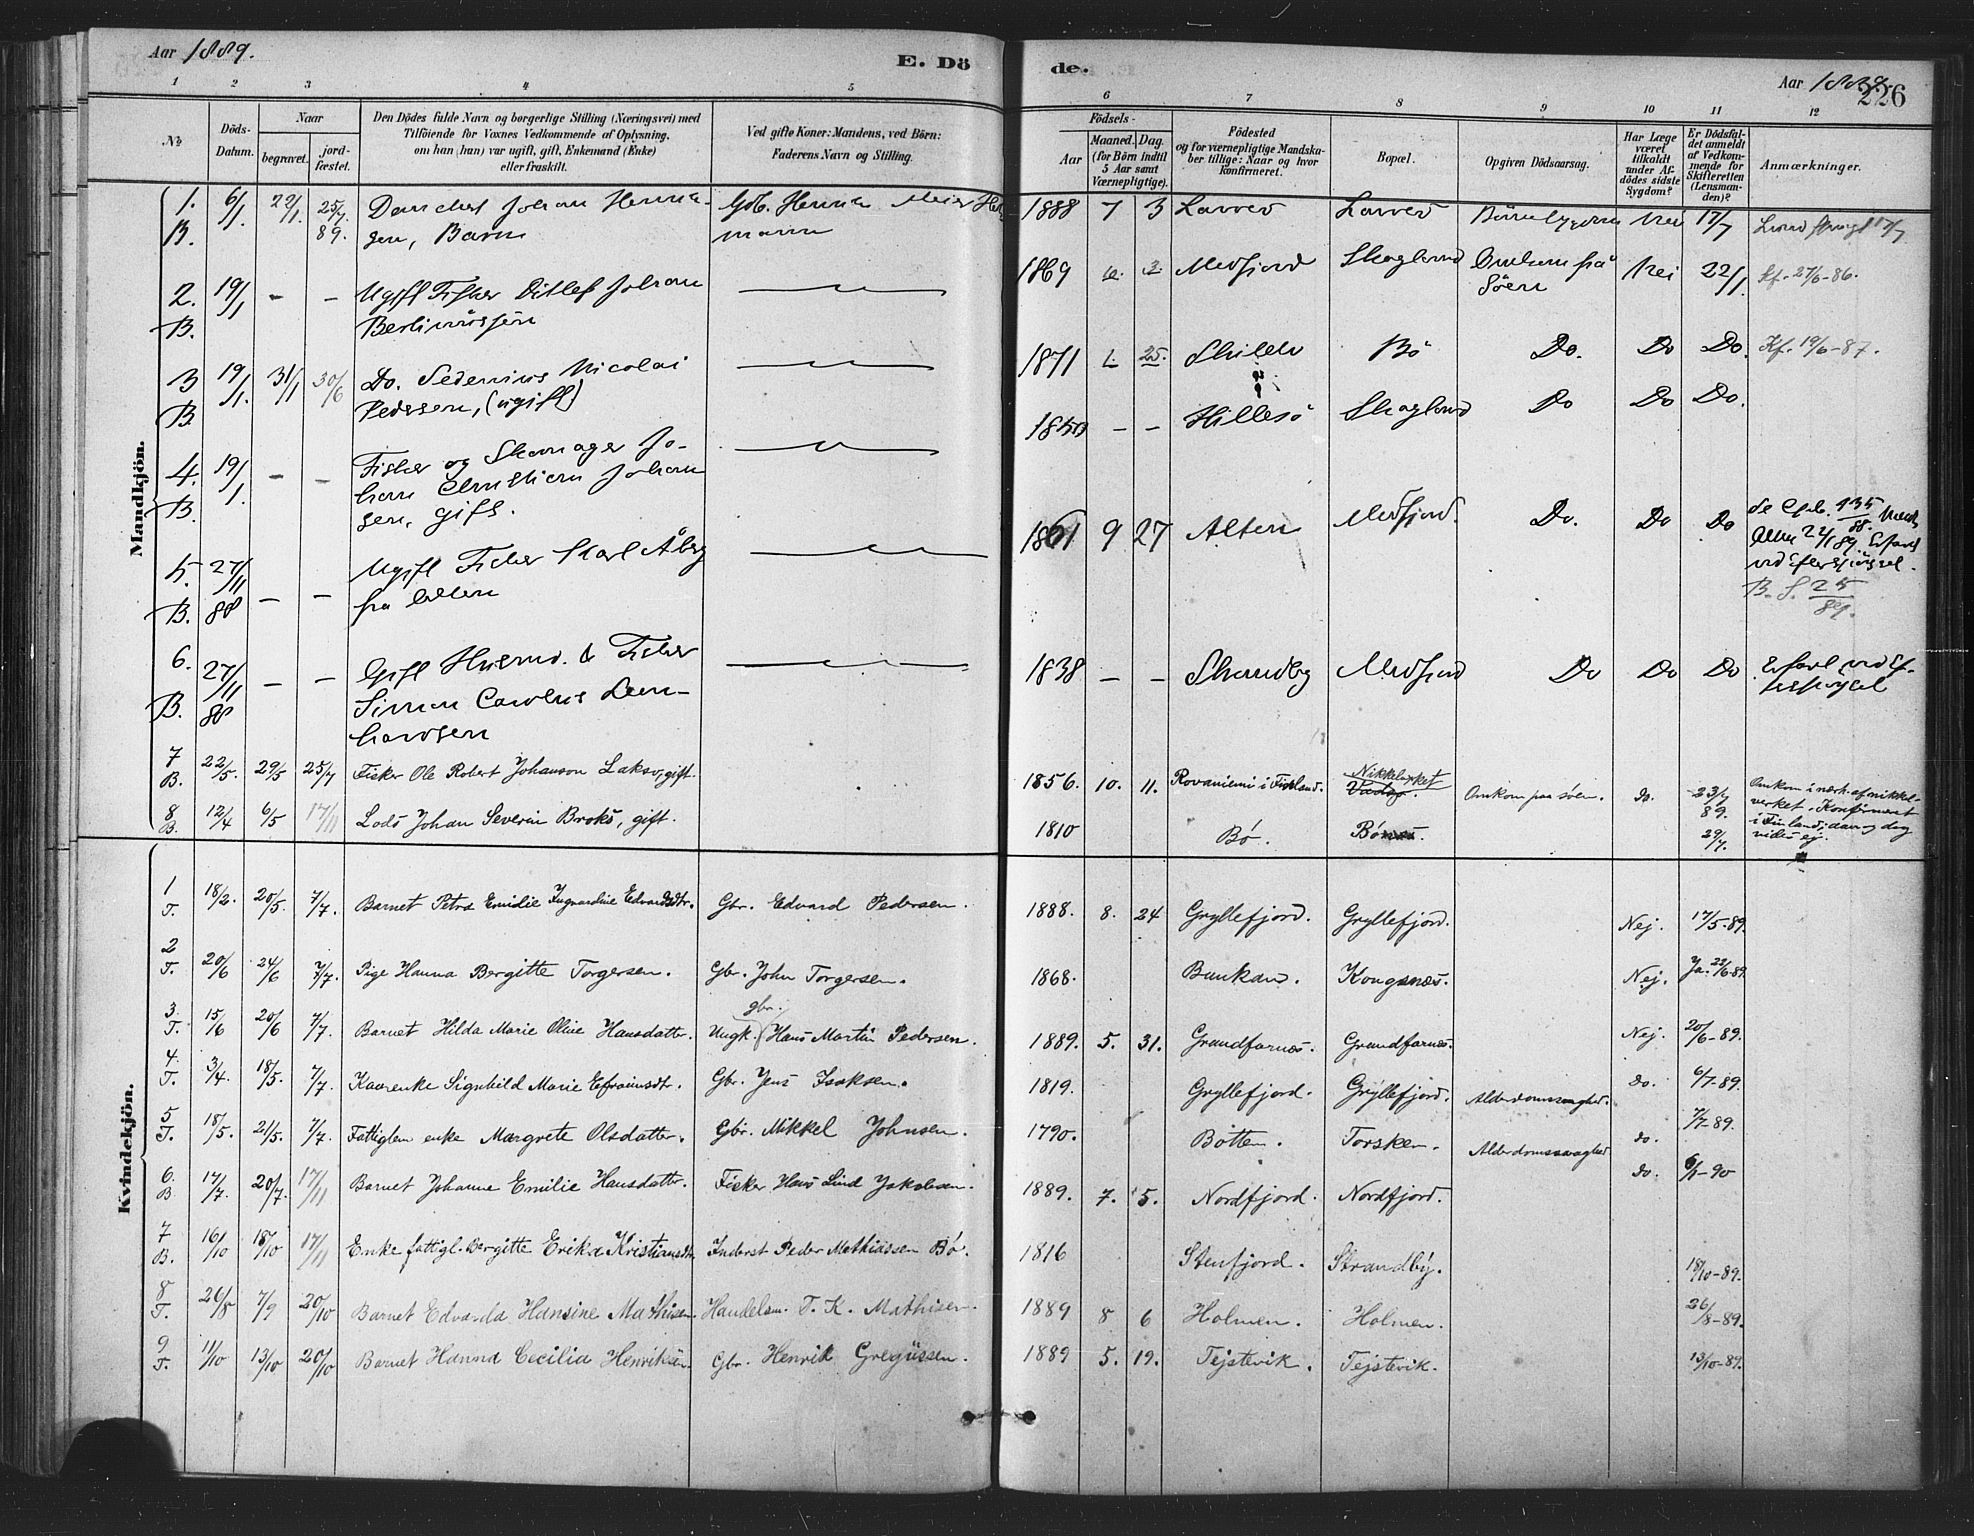 Aar 1889.
E. Dö
de.
Aar 1889.
226
1 2 3 4 5 6 7 8 9 10 11 12
No.
Döds-
Datum.
Naar
begravet.
jord-
fæstet.
Den Dödes fulde Navn og borgerlige Stilling (Næringsvei) med
Tilföiende for Voxnes Vedkommende af Oplysning,
om han (hun) var ugift, gift, Enkemand (Enke)
eller fraskilt.
Ved gifte Koner: Mandens, ved Börn:
Faderens Navn og Stilling.
Födsels-
Aar
Maaned. Dag.
(for Börn indtil
5 Aar samt
Værnepligtige).
Födested
og for værnepligtige Mandska-
ber tillige: Naar og hvor
konfirmeret.
Bopæl.
Opgiven Dödsaarsag.
Har Læge
været
tilkaldt
under Af-
dödes sidste
Sygdom?
Er Dödsfal-
det anmeldt
af Vedkom-
mende for
Skifteretten
(Lensman-
den)?
Anmærkninger.
Mandkjön.
1. B. 6/1 22/1 25/7 89. Johan Henrik-
sen, Barn Gdb. Henrik Meier
mann 1888 7 3 Nei 17/7
2. B. 19/1 - - Ugift Fisker Ditlef Johan
1869 Medfjord Skogland Omkom på
Söen Nei 22/1. Kf. 27/6-86.
3 B. 19/1. 31/1 30/6 Do. Nicolai
Pedersen, (ugift) 1871 1. 25. Bö Do. Do Do. Kf. 19/6-87.
4. B. 19/1. - - Fisker og Skomager Jo-
han Christian Johan
sen, gift. 1850 - - Hillesö Skogland Do Do Do.
5. B. 27/11 88 - - Ugift Fisker Karl Åberg
fra Alten 1861 9 27 Alten Medfjord. Do. Do Do
B. S. 25/89.
6. B. 27/11 88 - - Gift Husmd. & Fisker
Simon Carolus Leon-
hardsen 1838 - - Strandby Medfjord Do Do Do
7 B. 22/5. 29/5 25/7 Fisker Ole Robert Johanson Lakso, gift. 1856. 10. 11. Rovaniemi i Finland. Nikkelverket
Vadsø. Omkom paa søen. do. 23/7 89. Omkom i nærh. af nikkel-
verket. Konfirmert
i Finland; aar og dag
vides ej.
8 B. 12/4 6/5 17/11 Lods Johan Severin Broks, gift. 1810 Bø. 29/7.
Kvindekjön.
1 T. 18/2. 20/5. 7/7. Barnet Petra Emilie Ingvardine Edvardsdtr. Gbr. Edvard Pedersen. 1888. 8. 24 Gryllefjord. Gryllefjord. Nej. 17/5-89.
2 T. 20/6 24/6 7/7. Pige Hanna Bergitte Torgersen. Gbr. John Torgersen. 1868. Bunkan. Kongsnæs. Nej. Ja. 22/6-89.
3. T. 15/6 20/6 7/7. Barnet Hilda Marie Oline Hansdatter. gbr.
Ungk. Hans Martin Pedersen. 1889. 5. 31. Grundfarnæs. Grundfarnæs. Nej. 20/6-89.
4. T. 3/4. 18/5. 7/7. Kaarenke Signhild Marie Efraimsdtr. Gbr. Jens Isaksen. 1819. Gryllefjord. Gryllefjord. Alderdomssvaghed. do. 6/7-89.
5 T. 18/5. 21/5. 7/7. Fattiglem enke Margrete Olsdatter. Gbr. Mikkel Johnsen. 1790. Botten. Torsken. Alderdomssvaghed do. 7/7-89.
6. B 17/7. 20/7. 17/11 Barnet Johanne Emilie Hansdatter. Fisker Hans Lind Jakobsen. 1889. 7. 5. Nordfjord. Nordfjord. do. 6/1-90
7 B. 16/10 18/10 17/11 Enke fattigl. Bergitte Erika Kristiansdtr Inderst Peder Mathiassen Bø. 1816 Stenfjord. Strandby. 18/10-89.
8 T. 26/8 7/9 20/10 Barnet Edvarda Hansine Mathisen. Handelsm. T. K. Mathisen. 1889 8 6 Holmen. Holmen. 26/8-89.
9 T. 11/10 13/10 20/10 Barnet Hanna Cecilia Henriksen Gbr. Henrik Gregussen. 1889 5. 19. Tejstevik. Tejstevik. 13/10-89.